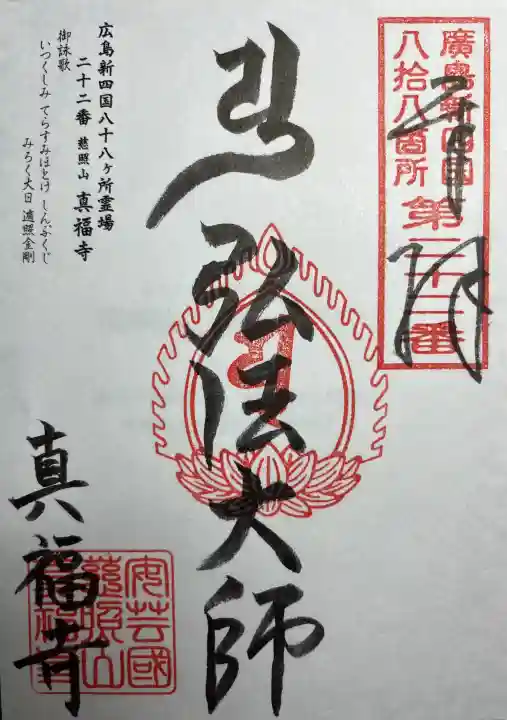 廣島新四国
八拾八箇所
第二十二番
奉拝
弘法大師
広島新四国八十八ヶ所霊場
二十二番 慈照山 真福寺
御詠歌
いつくしみ てらすみほとけ しんぷくじ
みろく大日 遍照金剛
安芸國
慈照山
真福寺
真福寺